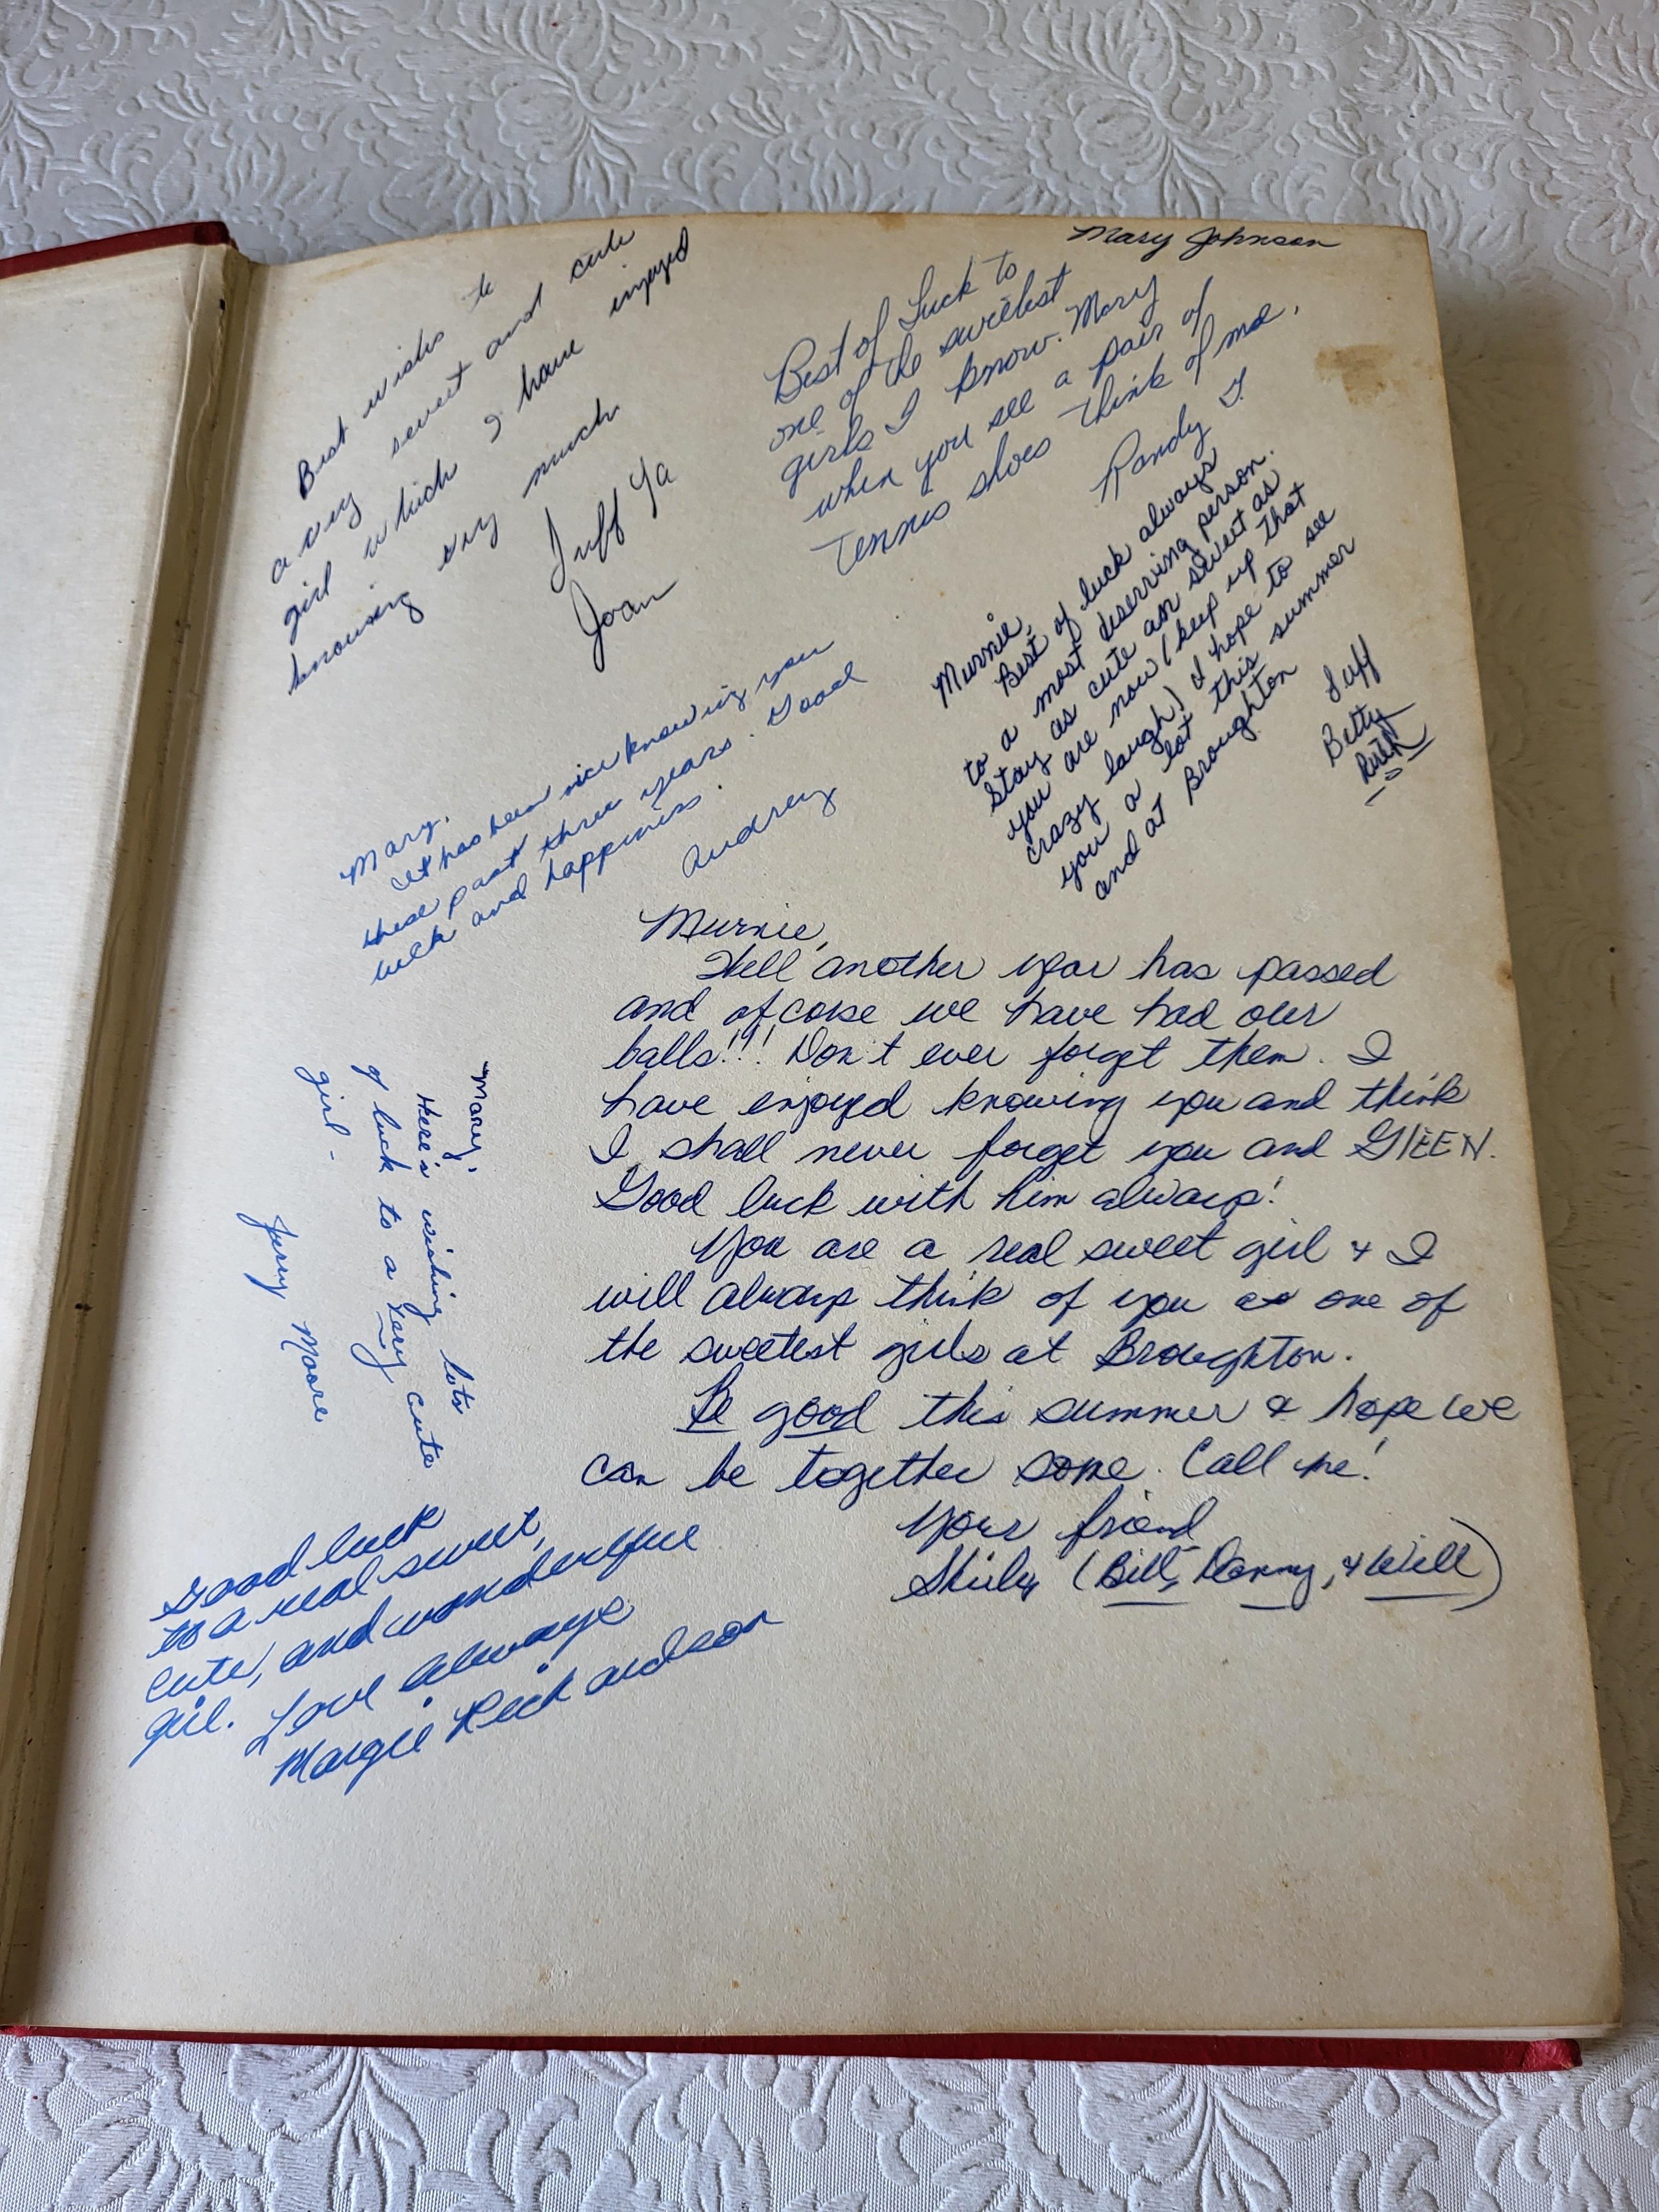 Mary Johnson
Best wishes to
a very sweet and cute
girl which I have enjoyed
knowing very much
Luff Ya
Joan
Best of Luck to
one of the sweetest
girls I know. Mary
when you see a pair of
Tennis shoes think of me.
Randy T
Murnie,
Best of luck always
to a most deserving person.
Stay as cute an sweet as
you are now (keep up that
crazy laugh) I hope to see
you a lot this summer
and at Broughton
Luff
Betty
Ruth
Mary,
It has been nice knowing you
these past three years. Good
luck and happiness.
Audrey
Murnie,
Well another year has passed
and ofcorse we have had our
balls!!! Don't ever forget them. I
have enjoyed knowing you and think
I shall never forget you and GlEEN.
Good luck with him always!
You are a real sweet girl + I
will always think of you as one of
the sweetest girls at Broughton.
Be good this summer & hope we
can be together some. Call me!
Your friend
Shirley (Bill, Danny, + Will)
Mary,
Here's wishing lots
of luck to a very cute
girl -
Jerry Moore
Good luck
to a real sweet,
cute, and wonderful
girl. Love always
Margie Richardson